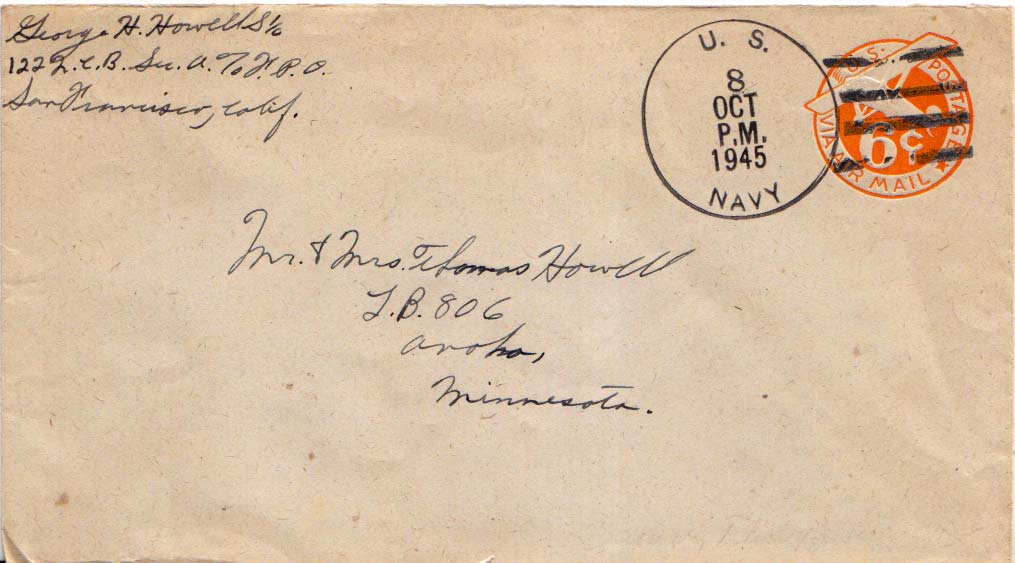 George H. Howell S1/c
122 N.C.B. Sec. A. % F.P.O.
San Francisco, Calif.
U. S.
8
OCT
P.M.
1945
NAVY
U.S. POSTAGE
6¢
VIA AIR MAIL
Mr. & Mrs. Thomas Howell
L.B. 806
Anoka,
Minnesota.